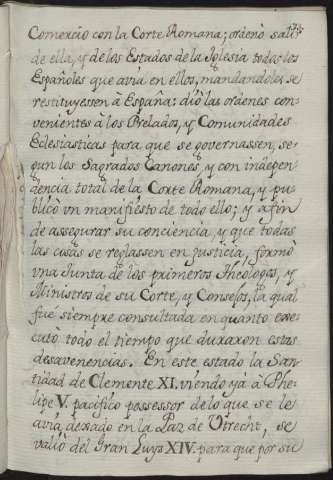 Comercio con la Corte Romana; ordenò salir
de ella, y de los Estados de la Iglesia todos los
Españoles que avia en ellos, mandandoles se
restituyessen à España: diò las ordenes con-
venientes à los Prelados, y Comunidades
Eclesiasticas para que se governassen, se-
gun los Sagrados Canones, y con indepen-
dencia total de la Corte Romana, y pu-
blicò vn manifiesto de todo ello; y a fin
de assegurar su conciencia, y que todas
las cosas se reglassen en justicia, formò
vna Junta de los primeros Theologos, y
Ministros de su Corte, y Consejos, la qual
fue siempre consultada en quanto exe-
cutò todo el tiempo que duraron estas
desavenencias. En este estado la San-
tidad de Clemente XI. viendo yà à Phe-
lipe V. pacifico possessor de lo que se le
avia dexado en la Paz de Utrecht, se
valiò del Gran Luys XIV. para que por su